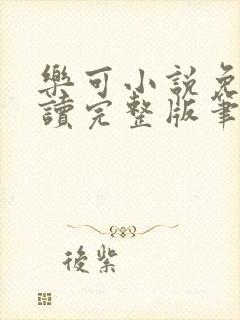 樂可小說免
讀完整版筆
後紫